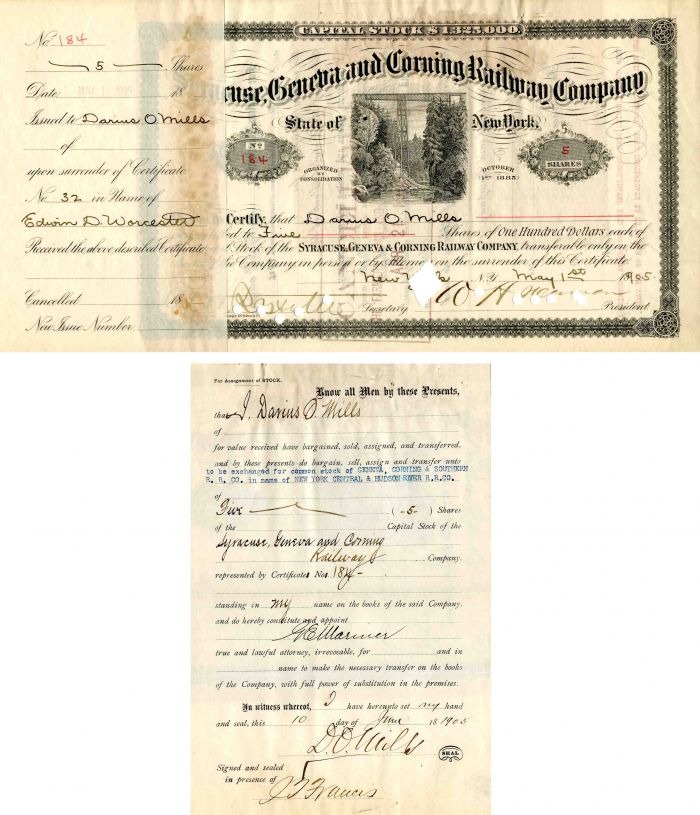 No 184
5 Shares
Date MAY 1 1905 18
Issued to Darius O. Mills
of
upon surrender of Certificate
No 32 in Name of
Edwin D. Worcester
Received the above described Certificate
Cancelled 18
New Issue Number
CAPITAL STOCK $1325,000.
cuse, Geneva and Corning Railway Company
State of New York.
No 184
ORGANIZED BY CONSOLIDATION
OCTOBER 1ST 1885.
5 SHARES
Certify, that Darius O. Mills
ed to Five Shares of One Hundred Dollars each of
Stock of the SYRACUSE, GENEVA & CORNING RAILWAY COMPANY, transferable only on the
e Company in person or by Attorney on the surrender of this Certificate
New York N.Y. May 1st 1905
Secretary President
For Assignment of STOCK.
Know all Men by these Presents,
that I, Darius O. Mills
of
for value received have bargained, sold, assigned, and transferred,
and by these presents do bargain, sell, assign and transfer unto
to be exchanged for common stock of GENEVA, CORNING & SOUTHERN
R. R. CO. in name of NEW YORK CENTRAL & HUDSON RIVER R.R.CO.
of
Five (-5-) Shares
of the Capital Stock of the
Syracuse, Geneva and Corning
Railway Company.
represented by Certificates Nos 184-
standing in my name on the books of the said Company.
and do hereby constitute and appoint
G.E. Mariner
true and lawful attorney, irrevocable, for and in
name to make the necessary transfer on the books
of the Company, with full power of substitution in the premises.
In witness whereof, I have hereunto set my hand
and seal, this 10 day of June 18 1905
D.O. Mills SEAL
Signed and sealed
in presence of
Francis